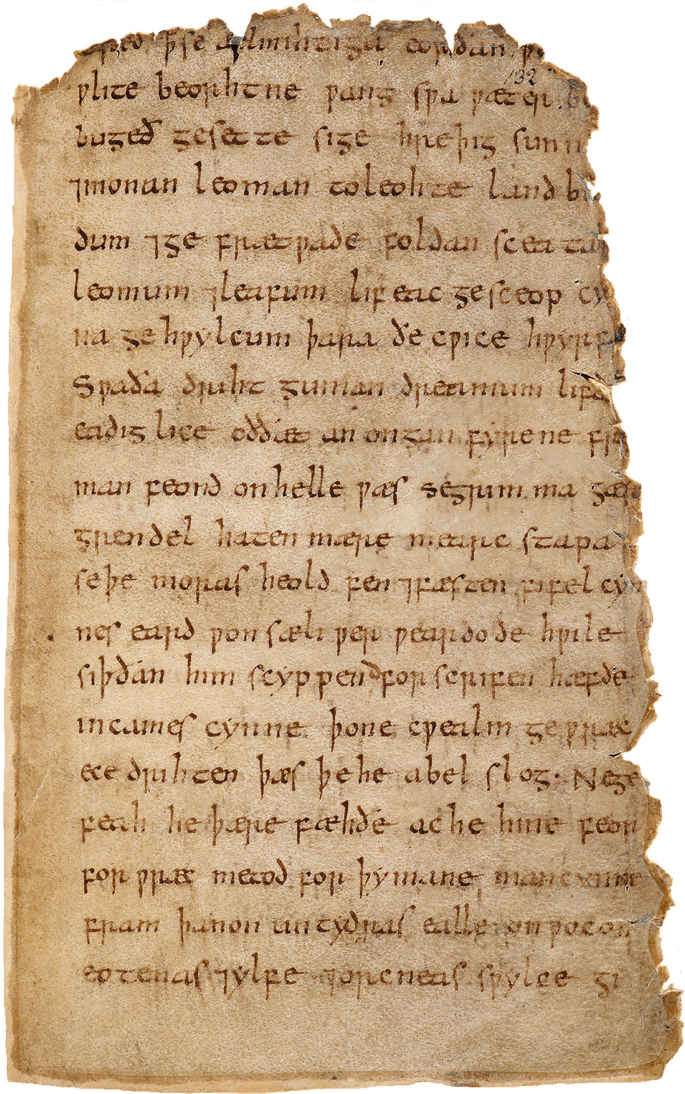 þ se ælmihtiga eorðan
132
ƿlite beorhtne ƿang sƿa ƿæter
bugeð gesette sige hreþig sunn
⁊monan leoman toleohte land b
dum ⁊ge frætƿade foldan sceata
leomum ⁊leafum lif eac gesceop cy
na gehƿylcum þara ðe cƿice hƿyrf
Sƿaða driht guman dreamum lifd
eadig lice oððæt an ongan fyrene fr
man feond onhelle ƿæs segrimma gæs
grendel haten mære mearc stapa
seþe moras heold fen ⁊fæsten fifel cyn
nes eard ƿon sæli ƿer ƿeardode hƿile
siþðan him scyppend forscrifen hæfde
incaines cynne þone cƿealm geƿræc
ece drihten þæs þehe abel slog· Nege
feah he þære fæhðe ache hine feor
forƿræc metod for þymane mancynne
fram þanon untydras ealle onƿocon
eotenas ⁊ylfe ⁊orcneas sƿylce gi